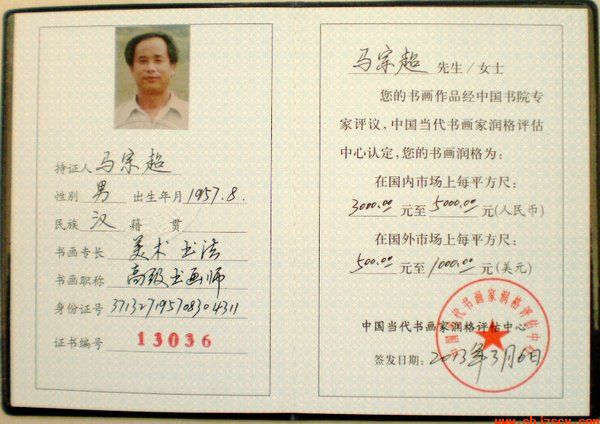 持证人 马宗超
性别 男 出生年月 1957.8.
民族 汉 籍贯
书画专长 美术 书法
书画职称 高级书画师
身份证号
证书编号 13036
马宗超 先生/女士
您的书画作品经中国书院专
家评议,中国当代书画家润格评估
中心认定,您的书画润格为:
在国内市场上每平方尺:
3000.00 元至 5000.00 元(人民币)
在国外市场上每平方尺:
500.00 元至 1000.00 元(美元)
中国当代书画家润格评估中心
签发日期: 2013年3月6日
中国当代书画家润格评估中心